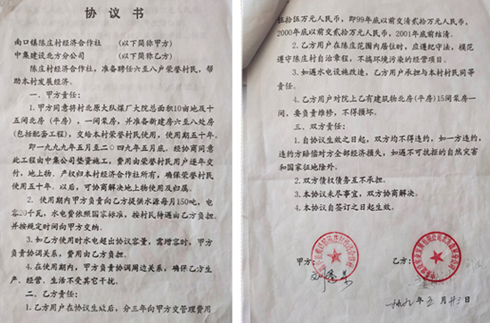 协议书
南口镇陈庄村经济合作社 （以下简称甲方）
中集建设北方分公司 （以下简称乙方）
陈庄村经济合作社，准备聘任六至八户荣誉村民，帮
助本村发展经济。
一、甲方责任：
1.甲方同意将村北原大队煤厂大院总面积10亩地及十
五间北房（平房），一间菜房，并准备新建房六至八处房
（包括配套工程），交给本村荣誉村民使用，使用期五十年。
即一九九九年五月至二〇四九年五月底。经协商同意
此工程由中集公司垫资施工，费用由荣誉村民用户逐年交
付，地上物、产权归本村经济合作社所有，确保荣誉村民
使用五十年。以后，可协商解决地上物使用及归属。
2.使用期内甲方负责向乙方提供水源每月150吨，电
容20千瓦，水电费依照国家标准，按村民待遇由乙方负担，
并按规定时间向甲方交纳。
3.如乙方使用时水电超出协议容量，需增容时，甲方
负责协调关系，费用由乙方负担。
4.在使用期内，甲方负责协调周边关系，确保乙方生
产、经营、生活不受其它干扰。
二、乙方责任：
1.乙方用户在协议生效后，分三年向甲方交管理费用
伍拾伍万元人民币，即99年底以前交清贰拾万元人民币，
2000年底以前交贰拾万元人民币，2001年底前结清。
2.乙方用户在陈庄范围内居住时，应遵纪守法，模范
遵守陈庄村自治章程，不搞环境污染的经营项目。
3.如遇水电设施改造，乙方用户承担与本村村民同等
责任。
4.乙方用户对院上乙有建筑物北房（平房）15间菜房一
间，要负责维修，不得损坏。
三、双方责任：
1.自协议生效之日起，双方均不得违约，如一方违约，
违约方赔偿对方全部经济损失，如遇不可抗拒的自然灾害
和国家征地除外。
2.双方债权债务互不承担。
3.本协议未尽事宜，双方协商解决。
4.本协议自签订之日起生效。
甲方：
乙方：
一九九九年五月廿三日